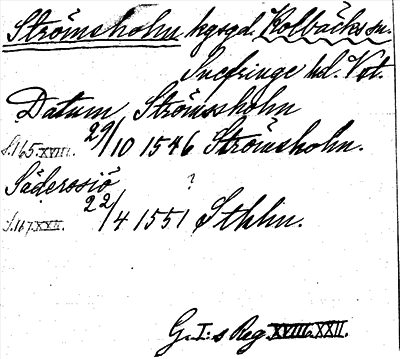 Strömsholm kgsgd. Kolbäcks sn.
Snefringe hd. Vst.
Datum Strömssholm
s. 165. XVIII. 29/10 1546 Strömsholm.
Säderosiö ?
s. 117. XXII. 22/4 1551 Sthlm.
G. I:s Reg. XVIII. XXII.